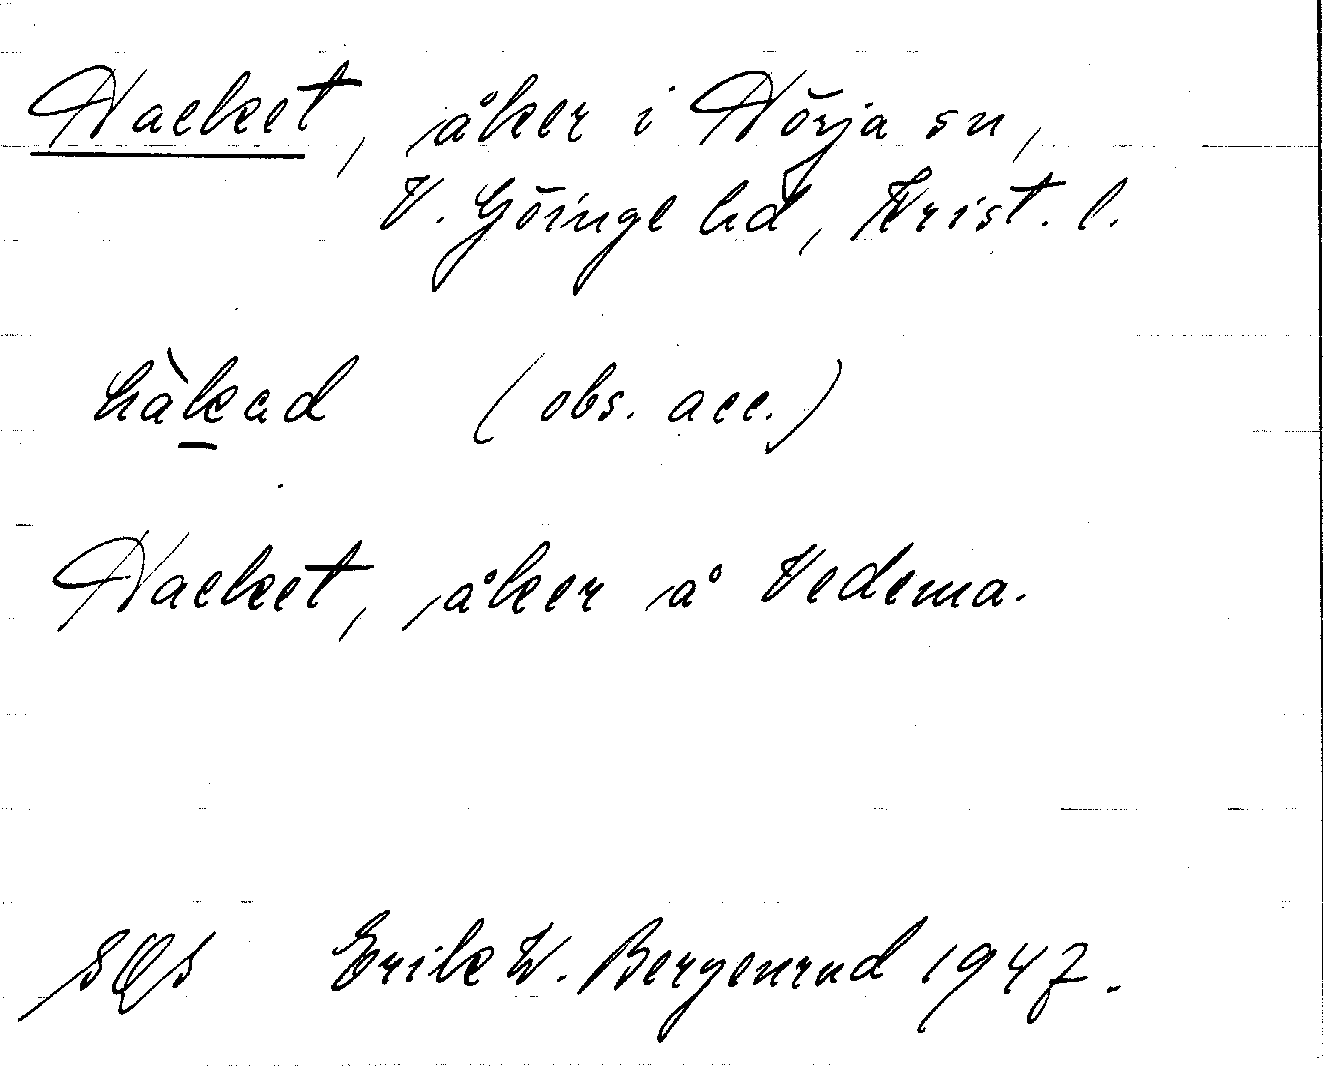 Hacket, åker i Hörja sn,
V. Göinge hd, Krist. l.
hàkad (obs. acc.)
Hacket, åker å Vedema.
Erik W. Bergenrud 1947.